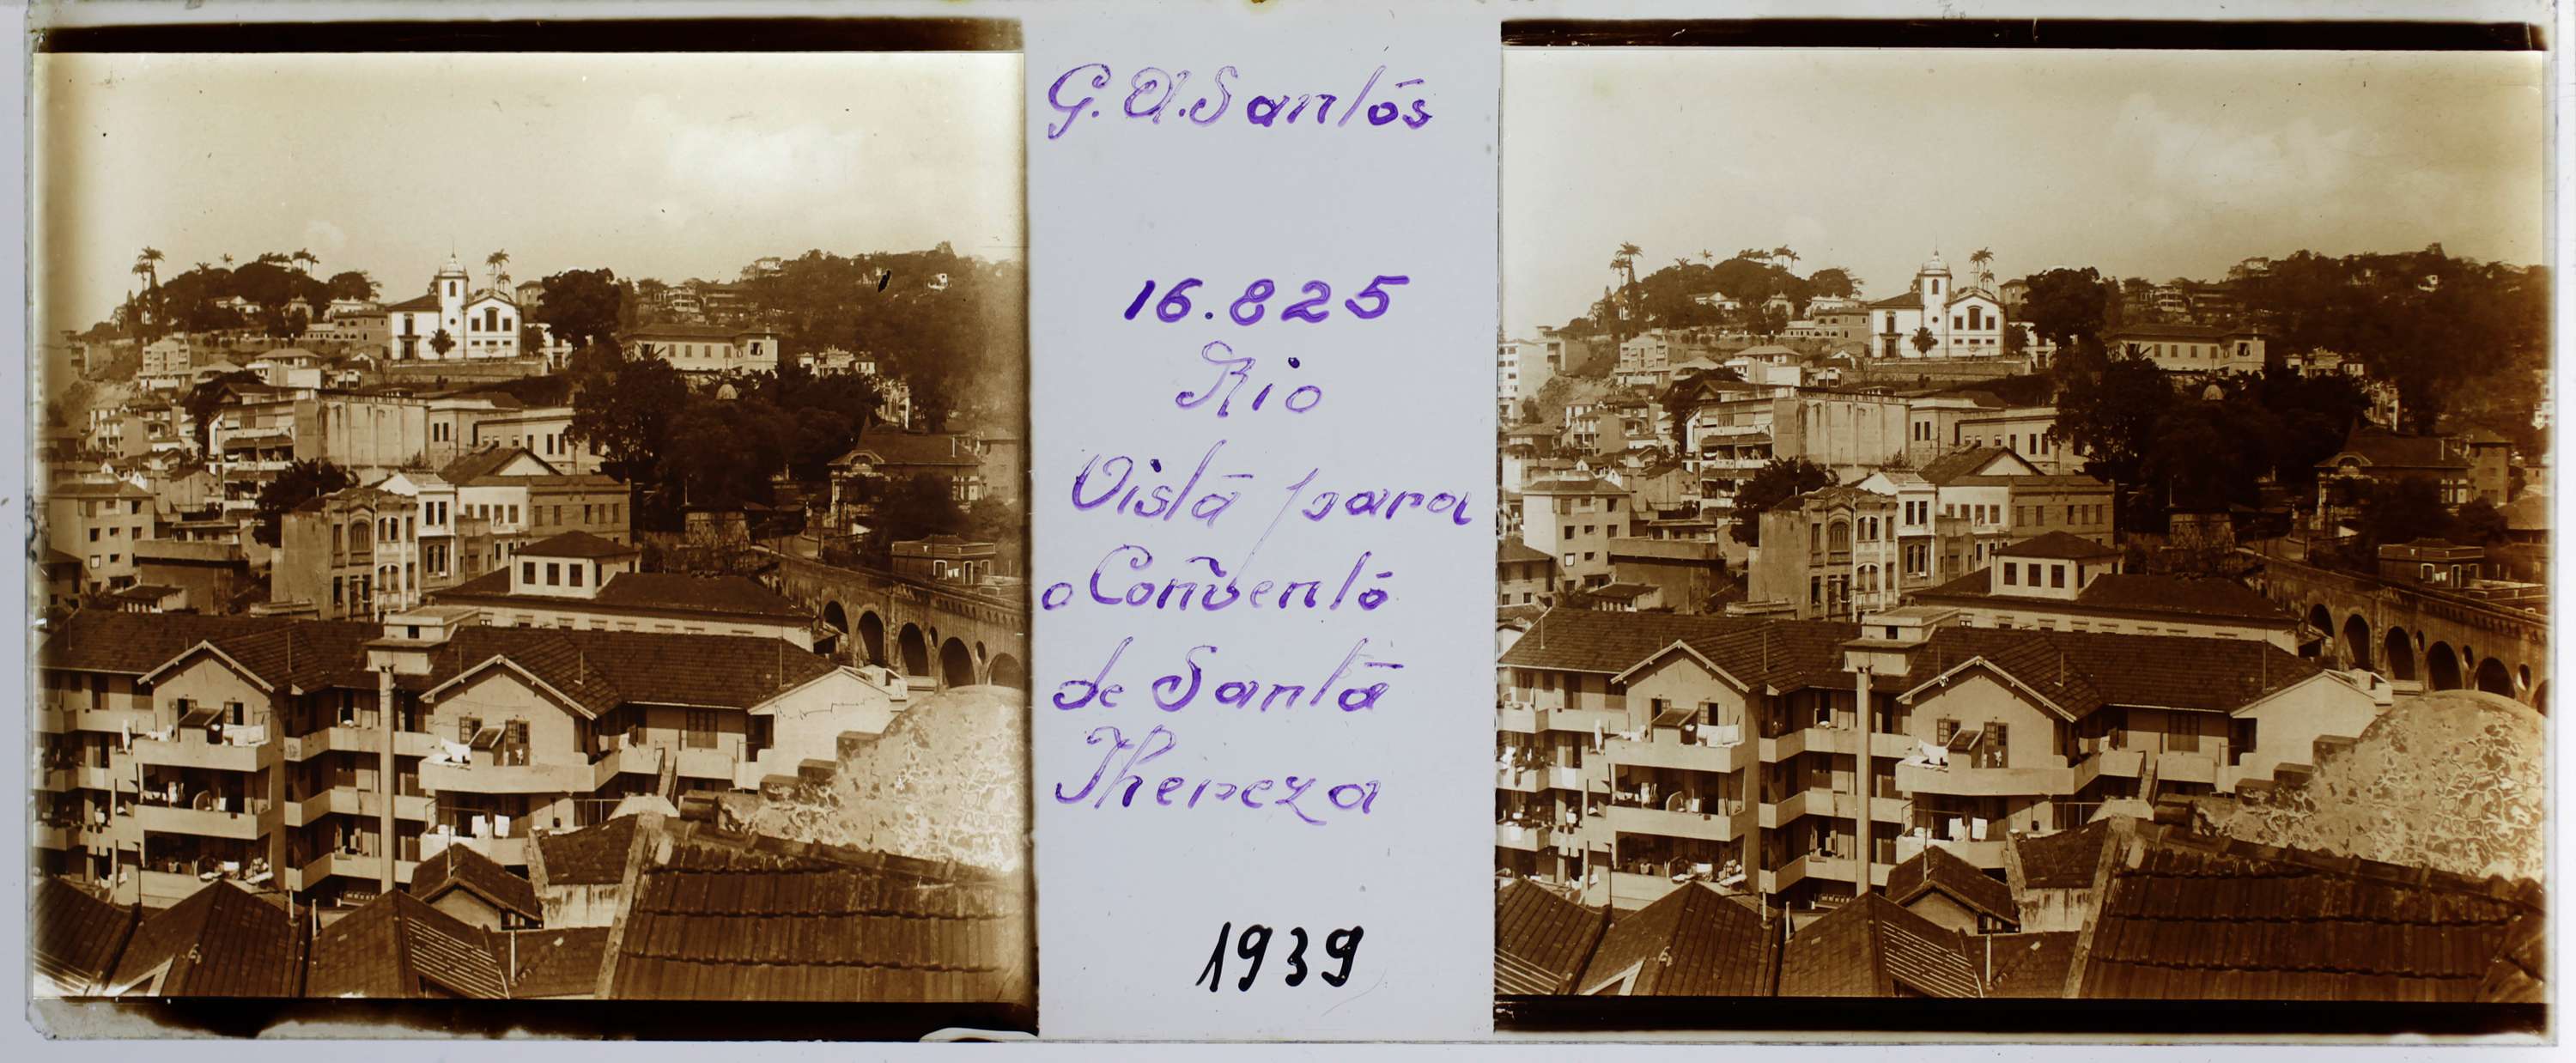 G. A. Santos
16.825
Rio
Vista para
o Convento
de Santa
Thereza
1939